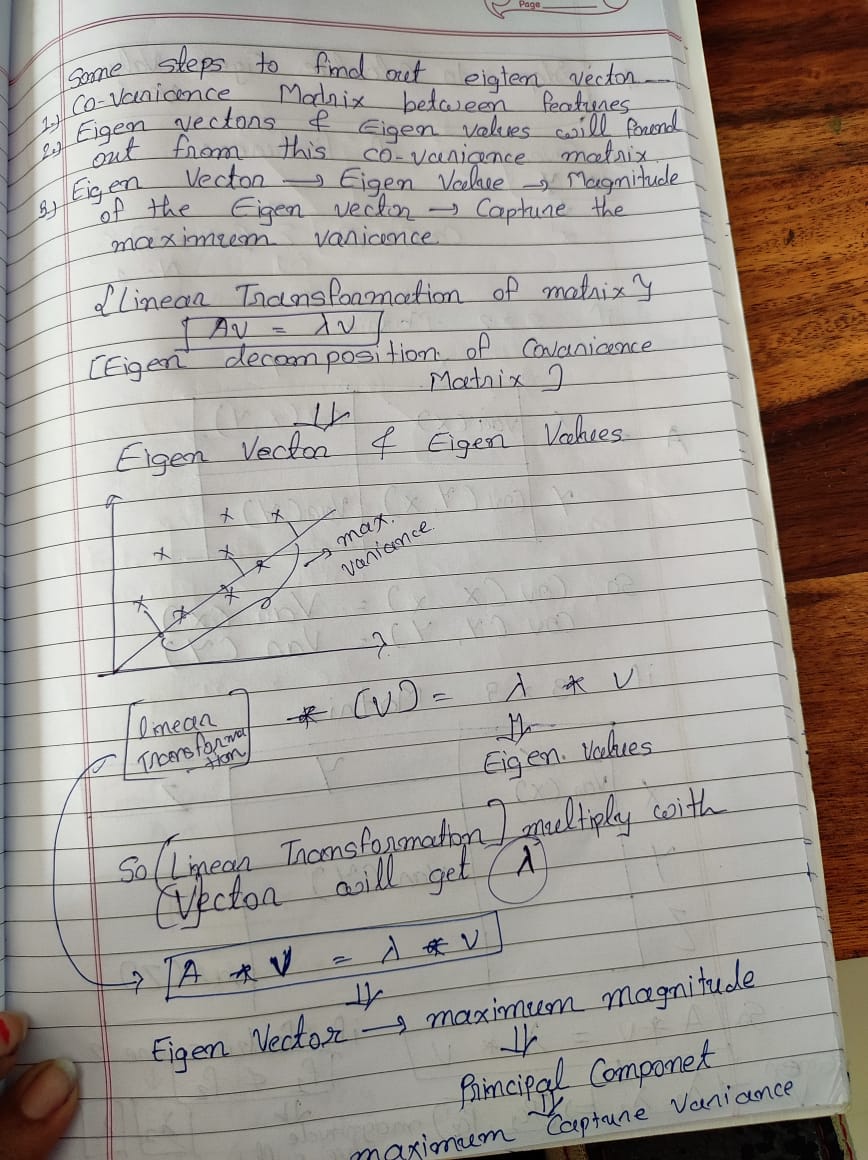 Page
Some steps to find out eigten vector
1.) Co-Variance Matrix between features
2.) Eigen vectors & Eigen values will found
out from this co-variance matrix
3.) Eigen Vector → Eigen Value → Magnitude
of the Eigen vector → Capture the
maximum variance
{Linear Transformation of matrix}
[AV = λV]
[Eigen decomposition of Covariance
Matrix]
⇓
Eigen Vector & Eigen Values
max.
variance
[linear
Transforma
tion] * (V) = λ * V
⇓
Eigen Values
So [Linear Transformation] multiply with
(Vector will get λ
→ [A * V = λ * V]
⇓
Eigen Vector → maximum magnitude
⇓
Principal Componet
⇓
maximum Capture Variance